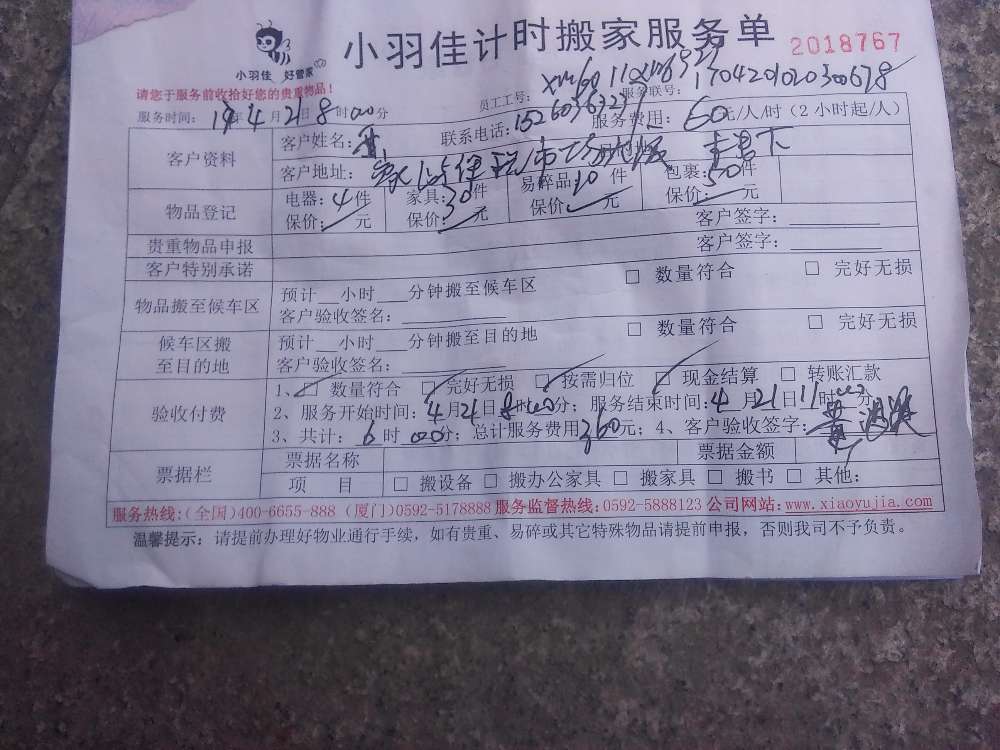 小羽佳计时搬家服务单
2018767
小羽佳 好管家
请您于服务前收拾好您的贵重物品!
员工工号: 服务联号: 17042010200678
服务时间: 年4月21日8时00分 联系电话: 服务费用: 60元/人/时(2小时起/人)
客户资料
客户姓名:
客户地址:
物品登记
电器: 4件 家具: 30件 易碎品: 10件 包裹: 50件
保价: 元 保价: 元 保价: 元 保价: 元
贵重物品申报 客户签字:
客户特别承诺 客户签字:
物品搬至候车区
预计 小时 分钟搬至候车区 □ 数量符合 □ 完好无损
客户验收签名:
候车区搬至目的地
预计 小时 分钟搬至目的地 □ 数量符合 □ 完好无损
客户验收签名:
验收付费
1、□ 数量符合 □ 完好无损 □ 按需归位 □ 现金结算 □ 转账汇款
2、服务开始时间: 4月21日8时00分; 服务结束时间: 4月21日11时00分
3、共计: 6时00分; 总计服务费用360元; 4、客户验收签字: 黄
票据栏
票据名称 票据金额
项 目 □ 搬设备 □ 搬办公家具 □ 搬家具 □ 搬书 □ 其他:
服务热线:(全国)400-6655-888 (厦门)0592-5178888 服务监督热线:0592-5888123 公司网站: www.xiaoyujia.com
温馨提示: 请提前办理好物业通行手续,如有贵重、易碎或其它特殊物品请提前申报,否则我司不予负责。